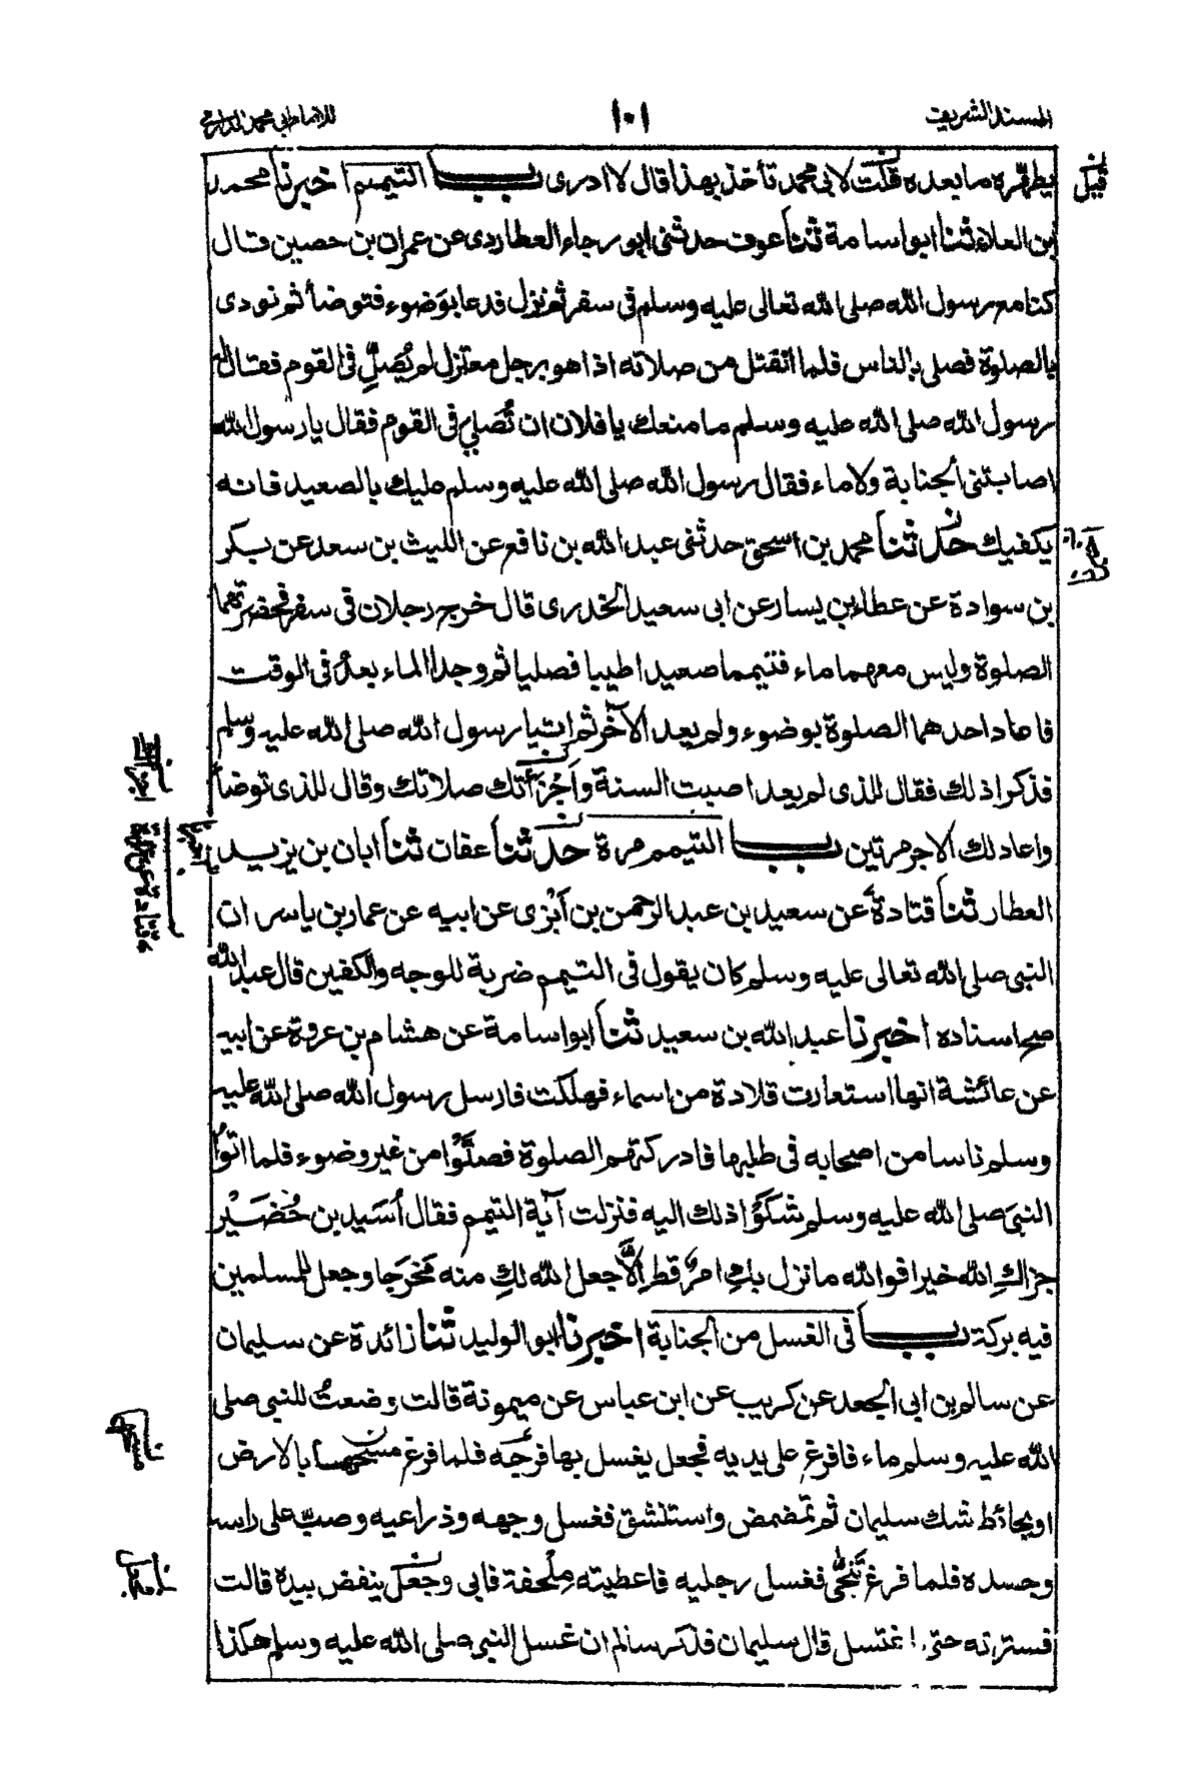 المسند الشريف
١٠١
للامام ابي محمد الدارمي
يطهّره ما بعده قلت لابى محمد تأخذ بهذا قال لا ادرى باب التيمم اخبرنا محمد
بن العلاء ثنا ابو اسامة ثنا عوف حدثنى ابو رجاء العطاردى عن عمران بن حصين قال
كنا مع رسول الله صلى الله تعالى عليه وسلم فى سفر ثم نزل فدعا بوَضوء فتوضأ ثم نودى
بالصلوة فصلى بالناس فلما انفتل من صلاته اذا هو برجل معتزل لم يُصَلِّ فى القوم فقال له
رسول الله صلى الله عليه وسلم ما منعك يا فلان ان تُصَلى فى القوم فقال يا رسول الله
اصابتنى الجنابة ولا ماء فقال رسول الله صلى الله عليه وسلم عليك بالصعيد فانه
يكفيك حدثنا محمد بن اسحق حدثنى عبد الله بن نافع عن الليث بن سعد عن بكر
بن سوادة عن عطاء بن يسار عن ابى سعيد الخدرى قال خرج رجلان فى سفر فحضرتهما
الصلوة وليس معهما ماء فتيمما صعيدا طيبا فصليا ثم وجدا الماء بعدُ فى الوقت
فاعاد احدهما الصلوة بوضوء ولم يعد الآخر ثم اتيا رسول الله صلى الله عليه وسلم
فذكرا ذلك فقال للذى لم يعد اصبت السنة واَجْزَأتك صلاتك وقال للذى توضأ
واعاد لك الاجر مرتين باب التيمم مرة حدثنا عفان ثنا ابان بن يزيد
العطار ثنا قتادة عن سعيد بن عبد الرحمن بن اَبْزى عن ابيه عن عمار بن ياسر ان
النبى صلى الله تعالى عليه وسلم كان يقول فى التيمم ضربة للوجه والكفين قال عبد الله
صح اسناده اخبرنا عبد الله بن سعيد ثنا ابو اسامة عن هشام بن عروة عن ابيه
عن عائشة انها استعارت قلادة من اسماء فهلكت فارسل رسول الله صلى الله عليه
وسلم ناسا من اصحابه فى طلبها فادركتهم الصلوة فصلَّوْا من غير وضوء فلما اتوُا
النبىَ صلى الله عليه وسلم شَكَوْا ذلك اليه فنزلت آية التيمم فقال اُسَيد بن حُضَيْر
جزاكِ الله خيرا فوالله ما نزل بكِ امرٌ قط الَّا جعل الله لكِ منه مَخرَجا وجعل للمسلمين
فيه بركة باب فى الغسل من الجنابة اخبرنا ابو الوليد ثنا زائدة عن سليمان
عن سالم بن ابى الجعد عن كريب عن ابن عباس عن ميمونة قالت وضعتُ للنبى صلى
الله عليه وسلم ماء فافرغ على يديه فجعل يغسل بها فرجَه فلما فرغ مسحها بالارض
او بحائط شك سليمان ثم تمضمض واستنشق فغسل وجهه وذراعيه وصبّ على راسه
وجسده فلما فرغ تَنَحّٰى فغسل رجليه فاعطيته مِلْحفة فابى وجعل ينفض بيده قالت
فسترته حتى اغتسل قال سليمان فذكر سالم ان غسل النبى صلى الله عليه وسلم هكذا